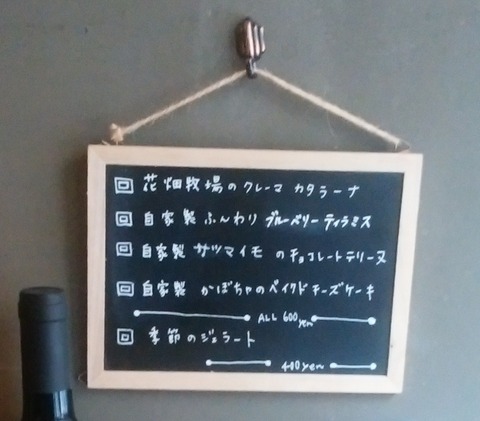 回 花畑牧場のクレーマ カタラーナ
回 自家製 ふんわり ブルーベリー ティラミス
回 自家製 サツマイモ のチョコレートテリーヌ
回 自家製 かぼちゃのベイクドチーズケーキ
ALL 600 yen
回 季節のジェラート
400 yen